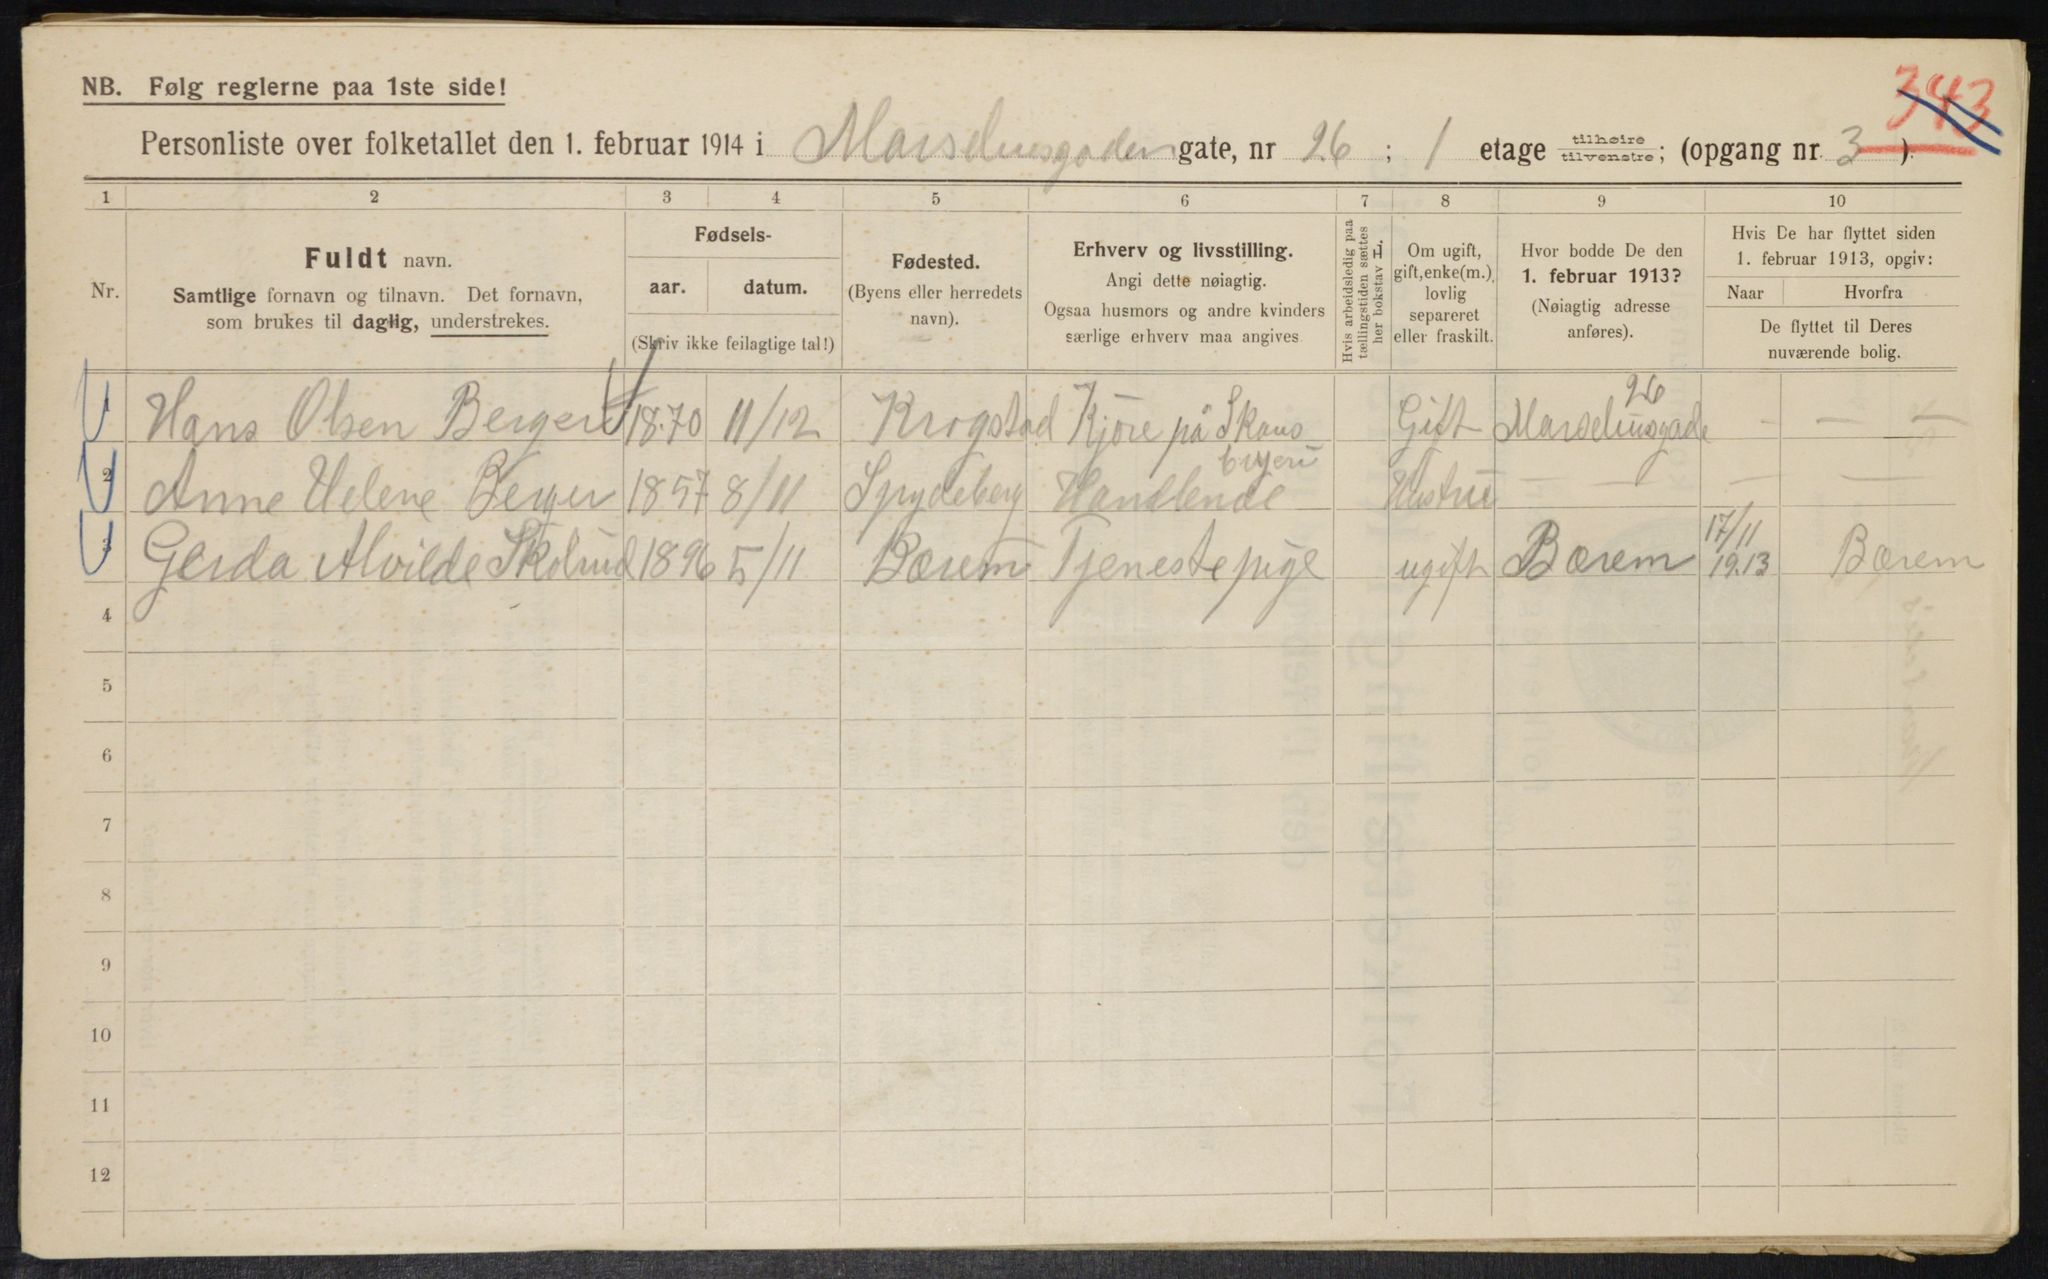 343
NB. Følg reglerne paa 1ste side!
Personliste over folketallet den 1. februar 1914 i Marseliusgaden gate, nr 26 ; 1 etage tilhøire/tilvenstre; (opgang nr. 3 ).
1 2 3 4 5 6 7 8 9 10
Nr.
Fuldt navn.
Samtlige fornavn og tilnavn. Det fornavn,
som brukes til daglig, understrekes.
Fødsels-
aar. datum.
(Skriv ikke feilagtige tal!)
Fødested.
(Byens eller herredets
navn).
Erhverv og livsstilling.
Angi dette nøiagtig.
Ogsaa husmors og andre kvinders
særlige erhverv maa angives
Hvis arbeidsledig paa
tællingstiden sættes
her bokstav L.
Om ugift,
gift, enke(m.),
lovlig
separeret
eller fraskilt.
Hvor bodde De den
1. februar 1913?
(Nøiagtig adresse
anføres).
Hvis De har flyttet siden
1. februar 1913, opgiv:
Naar Hvorfra
De flyttet til Deres
nuværende bolig.
1 Hans Olsen Berger 1870 11/12 Krogstad Kjöre på Skous bryeri Gift Marseliusgade 26 - - -
2 Anne Helene Berger 1857 8/11 Spydeberg Handlende Hustru - - - - -
3 Gerda Alvilde Skolrud 1896 5/11 Bærem Tjenestepige ugift Bærem 17/11 19.13 Bærem
4
5
6
7
8
9
10
11
12